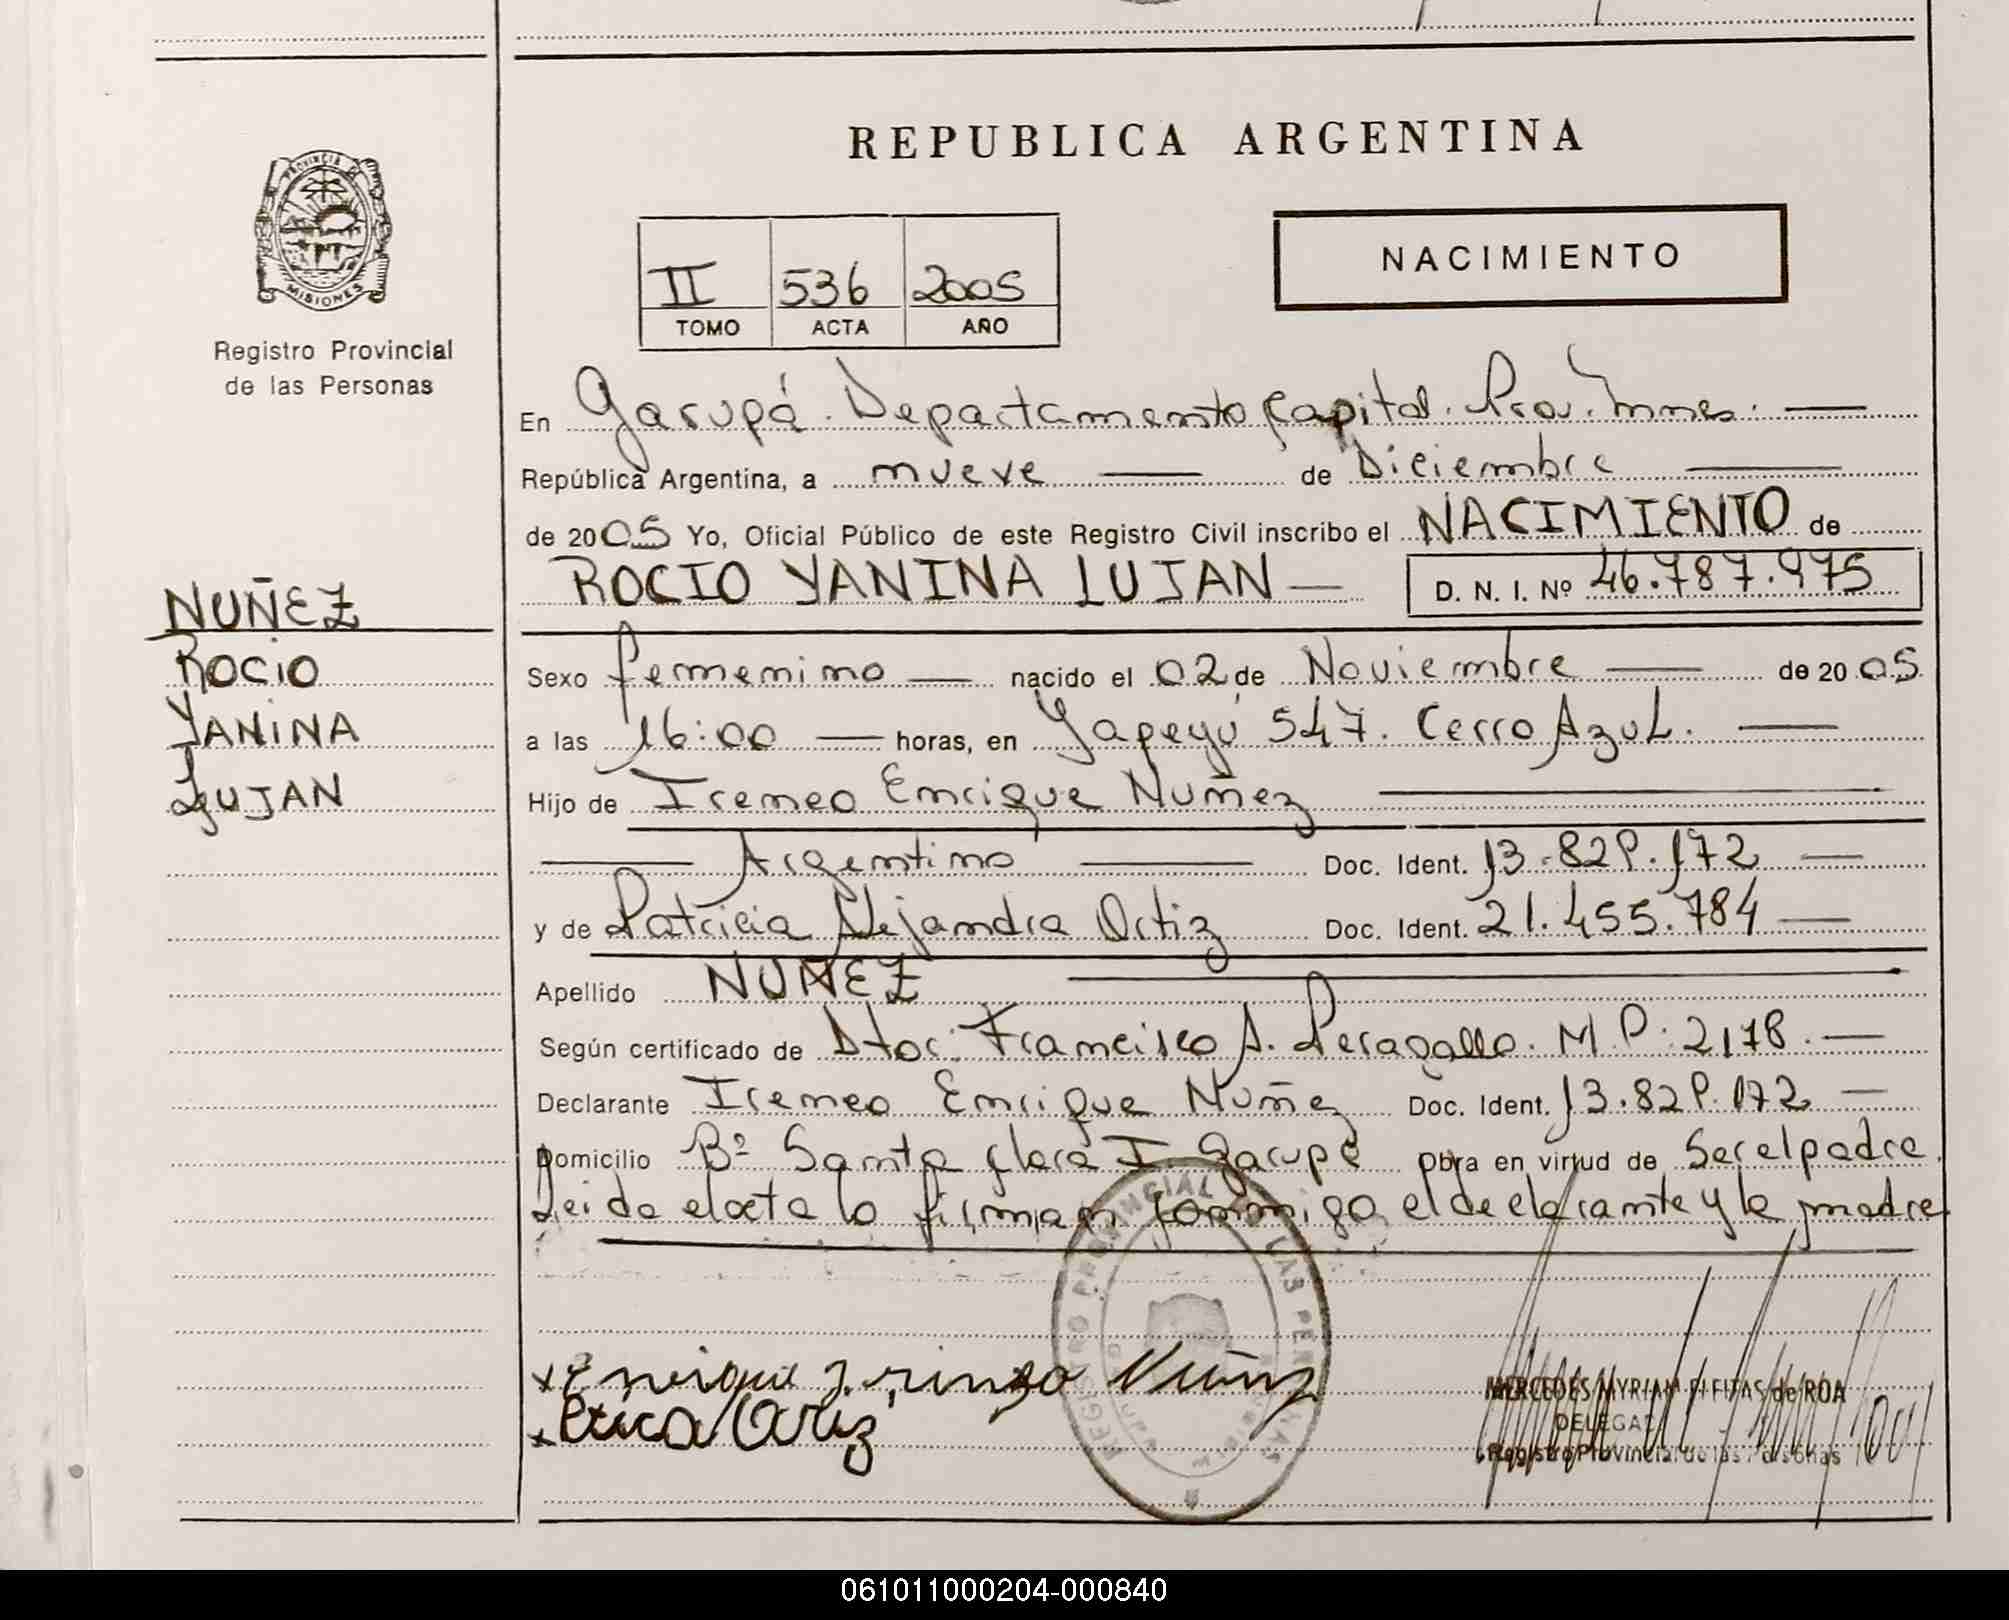 REPUBLICA ARGENTINA
PROVINCIA DE
MISIONES
Registro Provincial
de las Personas
NACIMIENTO
II 536 2005
TOMO ACTA AÑO
En Garupá. Departamento Capital. Prov. Mnes.
República Argentina, a nueve de Diciembre
de 2005 Yo, Oficial Público de este Registro Civil inscribo el NACIMIENTO de
ROCIO YANINA LUJAN D. N. I. Nº 46.787.975
NUÑEZ
ROCIO
YANINA
LUJAN
Sexo femenino nacido el 02 de Noviembre de 2005
a las 16:00 horas, en Yapeyú 547. Cerro Azul.
Hijo de Ireneo Enrique Nuñez
Argentino Doc. Ident. 13.829.172
y de Patricia Alejandra Ortiz Doc. Ident. 21.455.784
Apellido NUÑEZ
Según certificado de Dtor. Francisco A. Peragallo. M.P. 2178.
Declarante Ireneo Enrique Nuñez Doc. Ident. 13.829.172
Domicilio Bº Santa Clara I. Garupá Obra en virtud de Ser el padre.
Leida el acta lo firman conmigo el declarante y la madre
REGISTRO PROVINCIAL DE LAS PERSONAS
Enrique Nuñez
Ortiz
MERCEDES MYRIAM FLEITAS de ROA
DELEGADA
Registro Provincial de las Personas
061011000204-000840